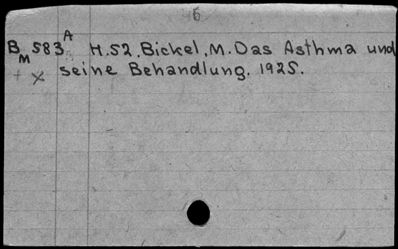 6
B M 583 A H.52. Bickel, M. Das Asthma und
+ x seine Behandlung. 1925.